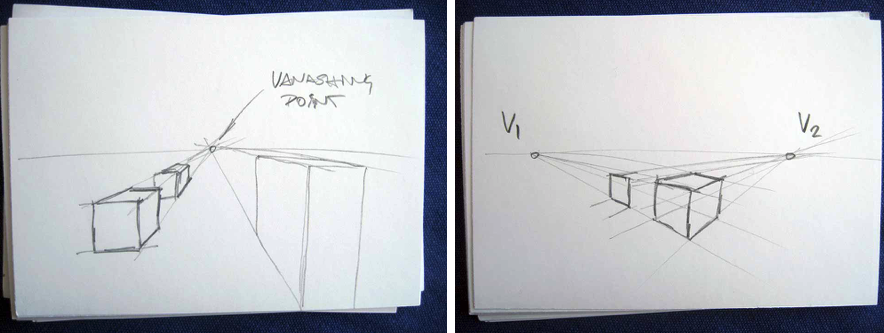 VANASHING
POINT
V1
V2